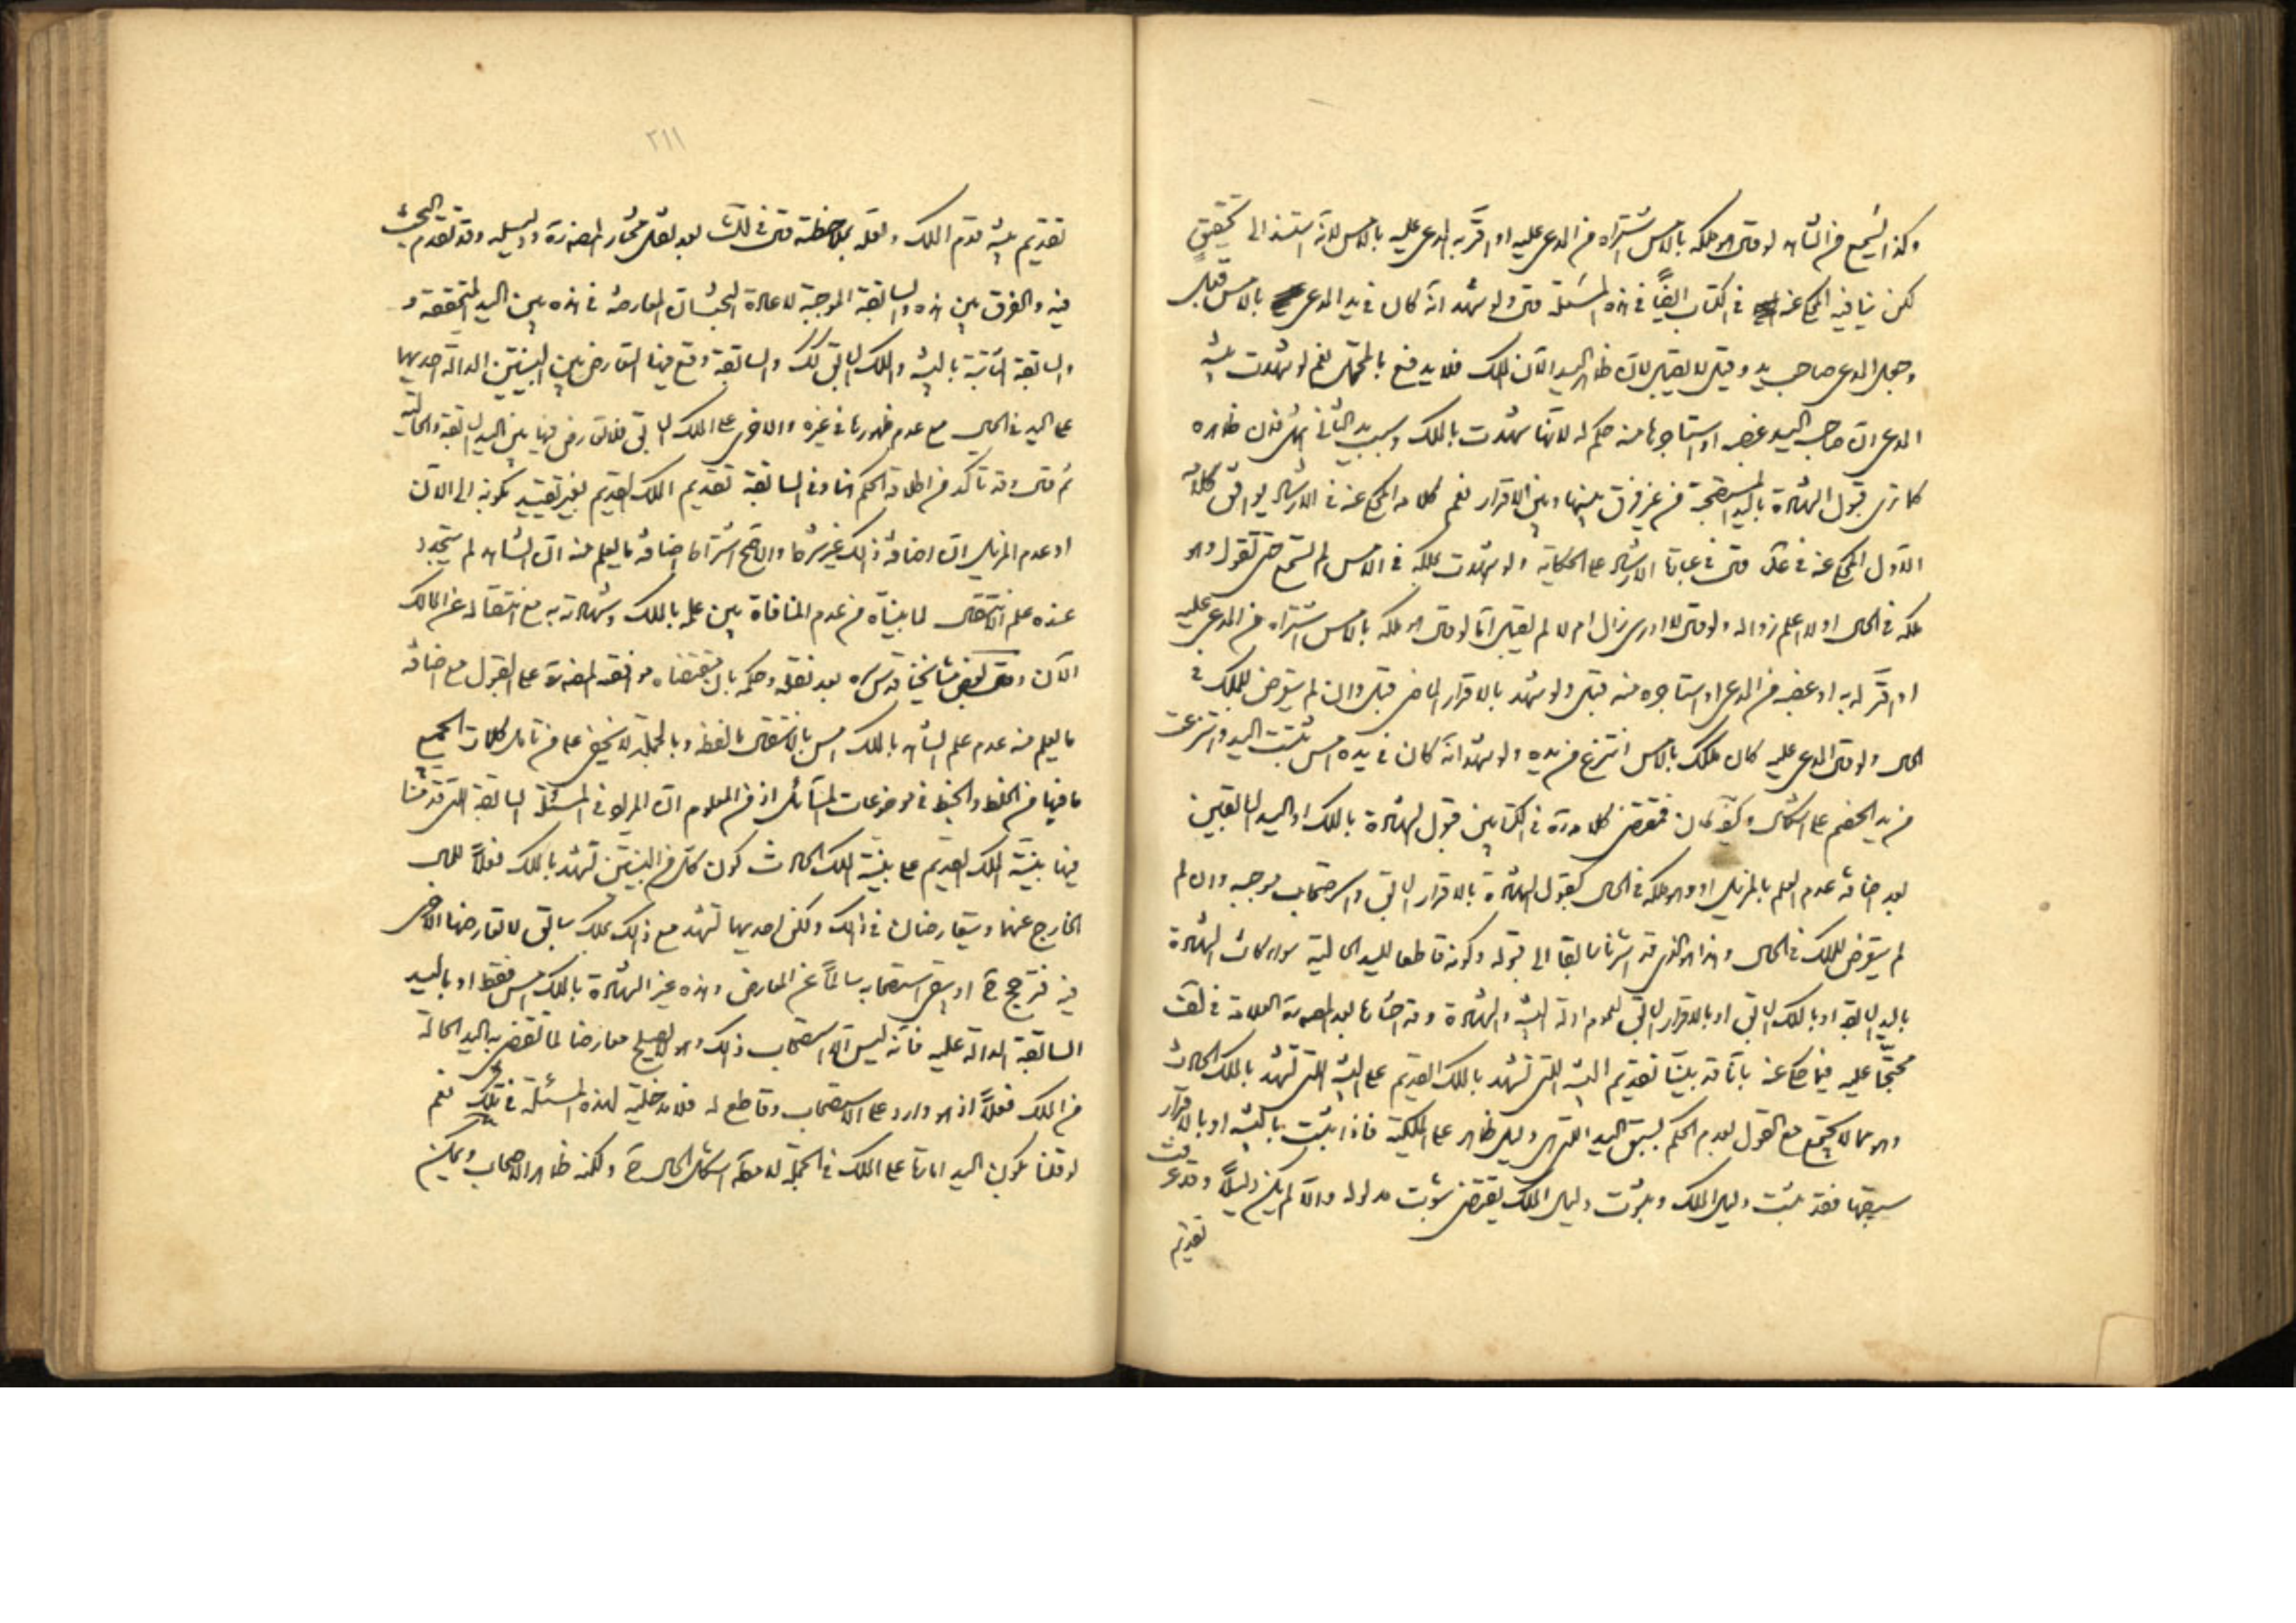 وكذا يسمع من الشاهد لو قال هو ملكه بالامس اشتراه من المدعى عليه او اقر به المدعى عليه بالامس لانه استند الى تحقيق
لكن ينافيه المحكى عنه في الكتاب ايضا في هذه المسئلة قال ولو شهد انه كان في يد المدعى بالامس قبل
وجعل المدعى صاحب يد وقيل لا يقبل لان ظاهر اليد الآن الملك فلا يدفع بالمحتمل نعم لو شهدت بينة
المدعى ان صاحب اليد غصبه او استاجرها منه حكم له لانها شهدت بالملك وسبب يد الثاني فان ظاهره
كما ترى قبول الشهادة باليد المستصحبة من غير فرق بينها وبين الاقرار نعم كلامه المحكى عنه في الارشاد يوافق كلامه
الاول المحكى عنه في قال في عبارة الارشاد على الحكاية ولو شهدت بملكه في الامس لم تسمع حتى تقول وهو
ملكه في الحال او لا اعلم زواله ولو قال لا ادرى زال ام لا لم يقبل اما لو قال هو ملكه بالامس اشتراه من المدعى عليه
او اقر له به او غصبه من المدعى او استاجره منه قبل ولو شهد بالاقرار الماضى قبل وان لم يتعرض للملك في
الحال ولو قال المدعى عليه كان ملكك بالامس انتزع من يده ولو شهد انه كان في يده امس ثبتت اليد وانتزعت
من يد الخصم على اشكال وكيف كان فمقتضى كلامه في الكتابين قبول الشهادة بالملك او اليد السابقين
بعد اضافة عدم العلم بالمزيل او وهو ملكه في الحال كقبول الشهادة بالاقرار السابق واستصحاب موجبه وان لم
لم يتعرض للملك في الحال وهذا هو الذى قد اشرنا سابقا الى قبوله وكونه قاطعا لليد الحالية سواء كانت الشهادة
باليد السابقة او بالملك السابق او بالاقرار السابق لعموم ادلة البينة والشهادة وقد اختارها بعد العلامة في
محتجا عليه فيما حكى عنه باتفاقه بيننا تقديم البينة التى تشهد بالملك القديم على البينة التى تشهد بالملك الحادث
وهو مما لا يجتمع مع القول بعدم الحكم بسبق اليد التى هى دليل ظاهر على الملكية فاذا ثبت بالبينة او بالاقرار
سبقها فقد ثبت دليل الملك وثبوت دليل الملك يقتضى ثبوت مدلوله والا لم يكن دليلا وقد عرفت
تقديم
٢١١
تقديم بينة قدم الملك ولعله بملاحظة قال في بعد نقل مختار ودليله وقد تقدم البحث
فيه والفرق بين هذه والسابقة الموجبة لاعادة البحث ان المعارضة في هذه بين اليد المتحققة و
والسابقة الثابتة بالبينة والملك السابق كك والسابقة وقع فيها التعارض بين البينتين الدالة احديهما
على اليد في الحال مع عدم ظهورها في غيره والاخرى على الملك السابق فلا تعارض فيها بين اليد السابقة والحالية
ثم قال وقد تاكد من اطلاقه الحكم هنا وفي السابقة تقديم الملك القديم بغير تقييد بكونه الى الآن
او عدم المزيل ان اضافة ذلك غير شرط والاصح اشتراط اضافة ما يعلم منه ان الشاهد لم يتجدد
عنده علم الانتقال لما بيناه من عدم المنافاة بين علمه بالملك وشهادته به مع انتقاله عن المالك
الآن وقال بعض مشايخنا قدس سره بعد نقله وحكمه بان مقتضاه موافقة على القبول مع اضافة
ما يعلم منه عدم علم الشاهد بالملك امس بالانتقال ما لفظه وبالجملة لا يخفى على من تامل كلمات الجميع
ما فيها من الخلط والخبط في موضوعات المسائل اذ من المعلوم ان المراد في المسئلة السابقة التى قدمنا
فيها بينة الملك القديم على بينة الملك الحادث كون كل من البينتين تشهد بالملك فعلا للحال
الخارج عنهما ويتعارضان في ذلك ولكن احديهما تشهد مع ذلك بملك سابق لا تعارضها الاخرى
فيه فترجح ح او يبقى استصحابه سالما عن المعارض وهذه غير الشهادة بالملك امس فقط او باليد
السابقة الدالة عليه فانه ليس الا استصحاب ذلك وهو لا يصلح معارضا لما تقتضى به اليد الحالة
من الملك فعلا اذ هو وارد على الاستصحاب وقاطع له فلا مدخلية لهذه المسئلة في تلك نعم
لو قلنا بكون اليد امارة على الملك في الجملة لامكن اشكال الحال ح ولكنه ظاهر الاصحاب ويمكن